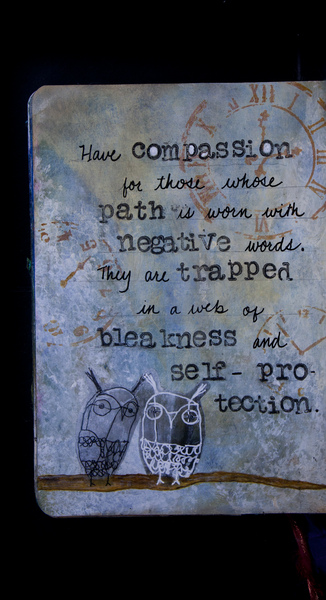 Have compassion
for those whose
path is worn with
negative words.
They are trapped
in a web of
bleakness and
self-pro-
tection.